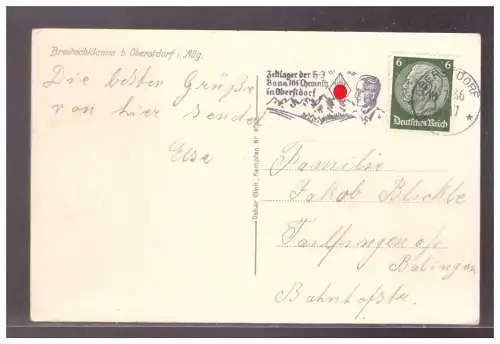 Breitachklamm b Oberstdorf i. Allg.
Die besten Grüße
von hier sendet
Else
Zeltlager der HJ
Bann 104 Chemnitz
in Oberstdorf
6 6
Deutsches Reich
OBERSTDORF
36
Familie
Jakob
Tailfingen o/
Balingen
Bahnhofstr.